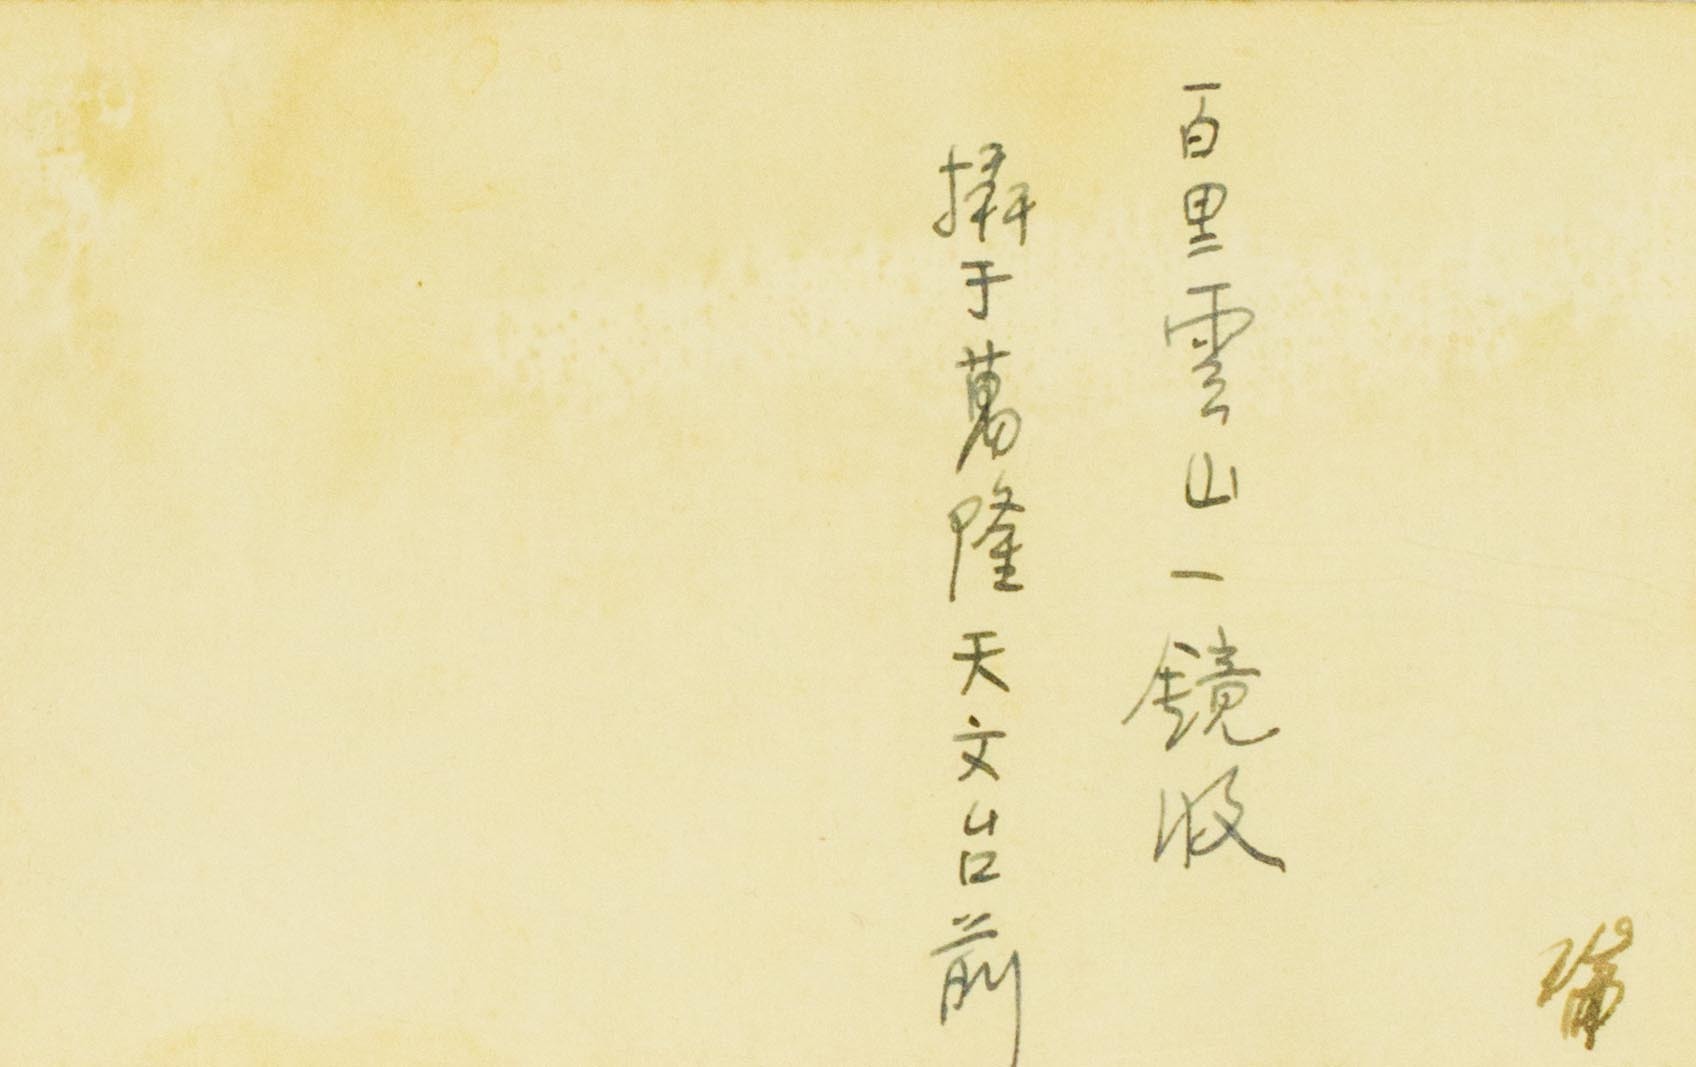 百里雲山一鏡收
攝于萬隆天文台前